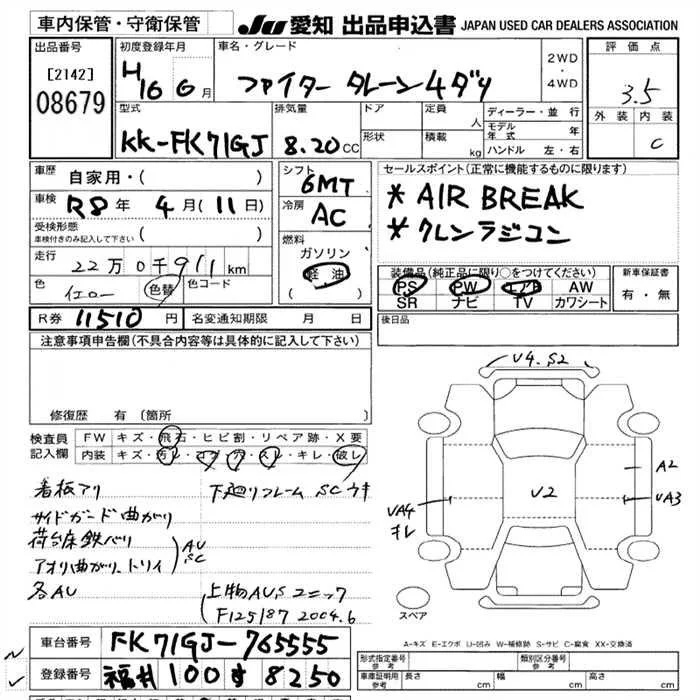 車内保管・守衛保管 JU 愛知 出品申込書 JAPAN USED CAR DEALERS ASSOCIATION
出品番号 初度登録年月 車名・グレード 2WD・4WD 評価点
[2142] 08679 H16 6月 ファイター クレーン4ダン 3.5
型式 排気量 ドア 定員 人 ディーラー・並行 外装 内装
KK-FK71GJ 8.20 CC 形状 積載 kg モデル年式 年 C
ハンドル 左・右
車歴 自家用・( ) シフト 6MT セールスポイント(正常に機能するものに限ります)
車検 R8年 4月(11日) 冷房 AC * AIR BREAK
受検形態 車検付きのみ記入して下さい ( ) * クレンラジコン
走行 22万0千911km 燃料 ガソリン 軽油 装備品(純正品に限り○をつけてください) 新車保証書
色 イエロー 色替 色コード ( ) PS PW エアB AW 有・無
SR ナビ TV カワシート
R券 11510円 名変通知期限 月 日 後日品
注意事項申告欄(不具合内容等は具体的に記入して下さい)
V4.S2
修復歴 有 〔箇所
検査員記入欄 FW キズ・飛石・ヒビ割・リペア跡・X要
内装 キズ・汚レ・コゲ・穴・スレ・キレ・破レ
A2
V2
VA3
VA4
キレ
看板アリ 下廻リフレーム SCウキ
サイドガード曲がり
荷台床鉄バリ
アオリ曲がり、トソイ AU SC
各AU 上物AUSユニック
F125187 2004.6
スペア
A-キズ E-エクボ U-凹み W-補修跡 S-サビ C-腐食 XX-交換済
車台番号 FK71GJ-765555
登録番号 福井100す8250
形式指定番号 参考 類別区分番号 参考
車庫証明用 参考 長さ cm 幅 cm 高さ cm